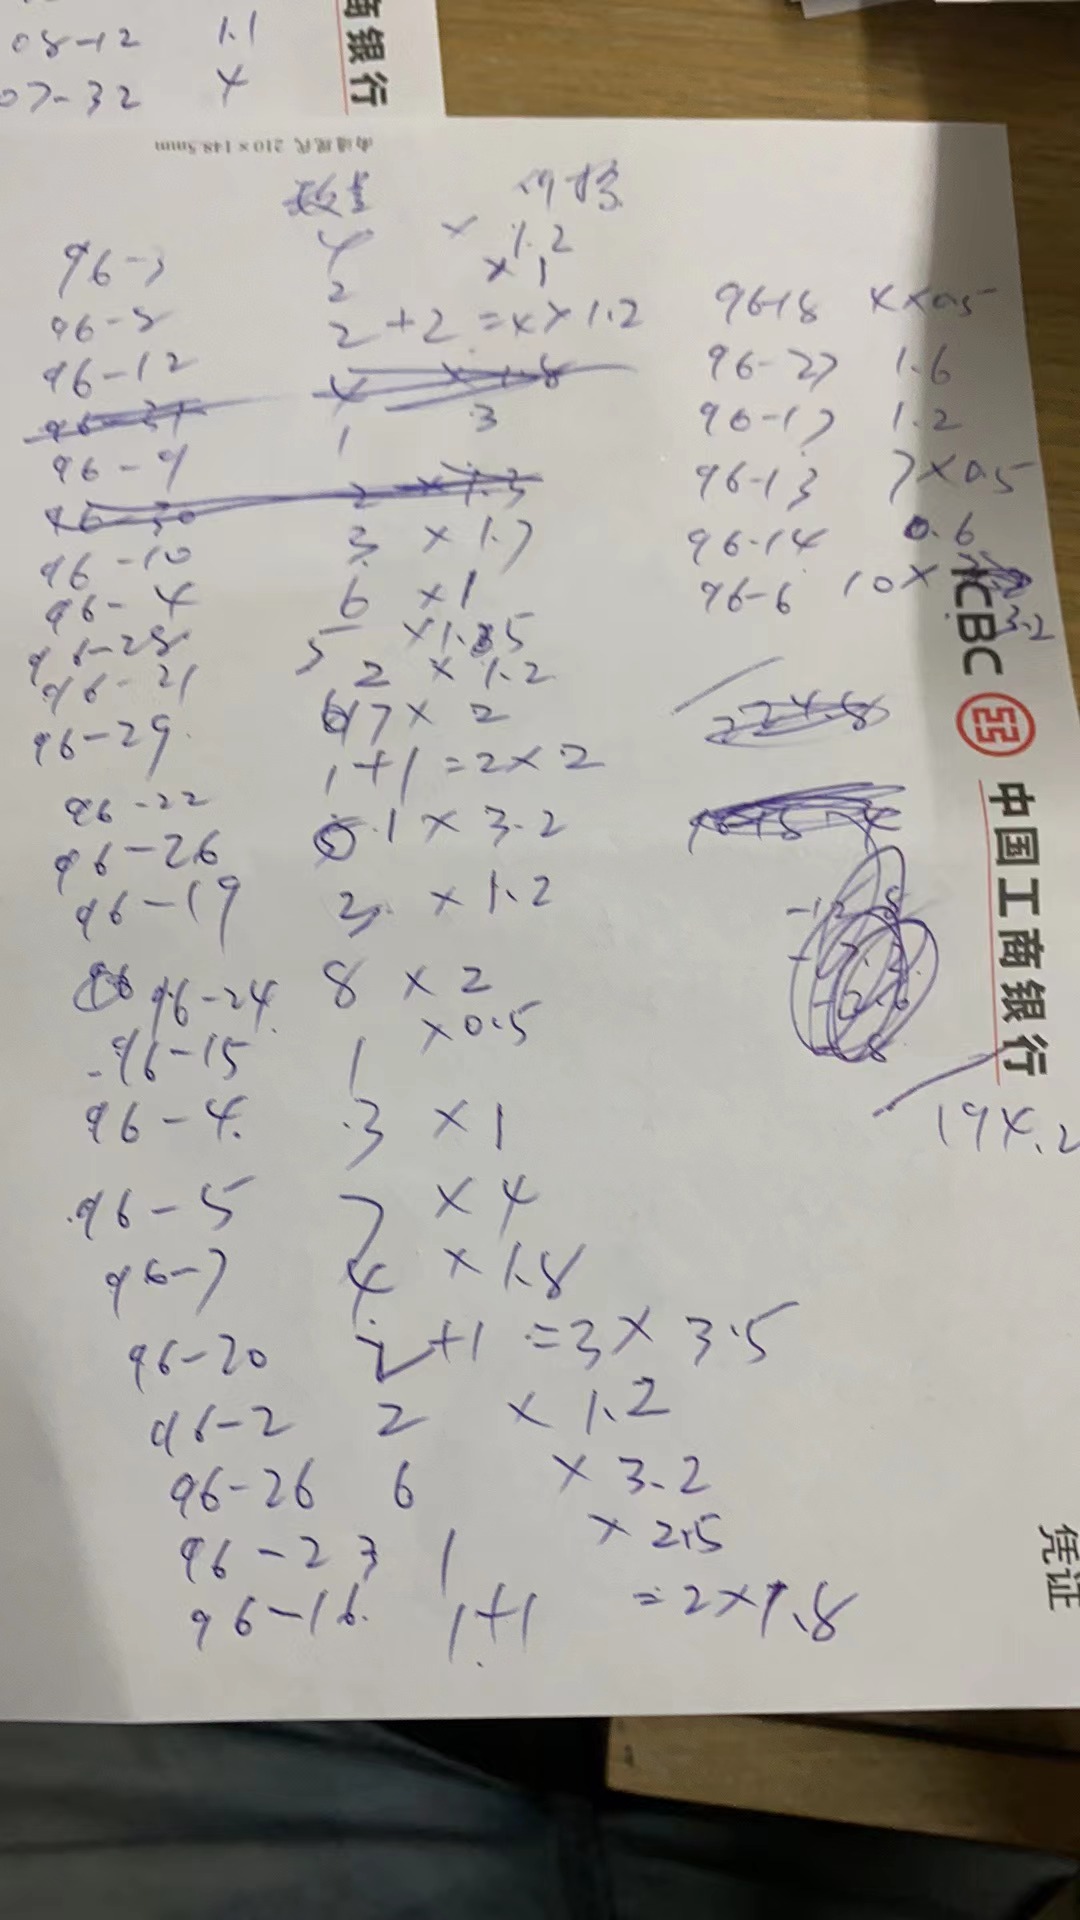 08-12 1.1
07-32 4
商银行
南通现代 210×148.5mm
数量 价格
96-3 4 × 1.2
96-8 2 × 1
96-12 2+2=4×1.2
96-31 4 ×1.8
96-9 1 3
96-30 2 ×1.3
96-10 3 ×1.7
96-4 6 ×1
96-28 5 ×1.35
96-21 2 ×1.2
96-29 7×2
96-22 1+1=2×2
96-26 1×3.2
96-19 3 ×1.2
96-24 8 ×2
96-15 1 ×0.5
96-4 3 ×1
96-5 7 ×4
96-7 4 ×1.8
96-20 2+1 =3×3.5
96-2 2 ×1.2
96-26 6 ×3.2
96-23 1 ×2.5
96-16 1+1 =2×1.8
96-18 4×0.5
96-27 1.6
96-17 1.2
96-13 7×0.5
96-14 0.6
96-6 10×3.2
224.8
194.2
ICBC 中国工商银行
凭证